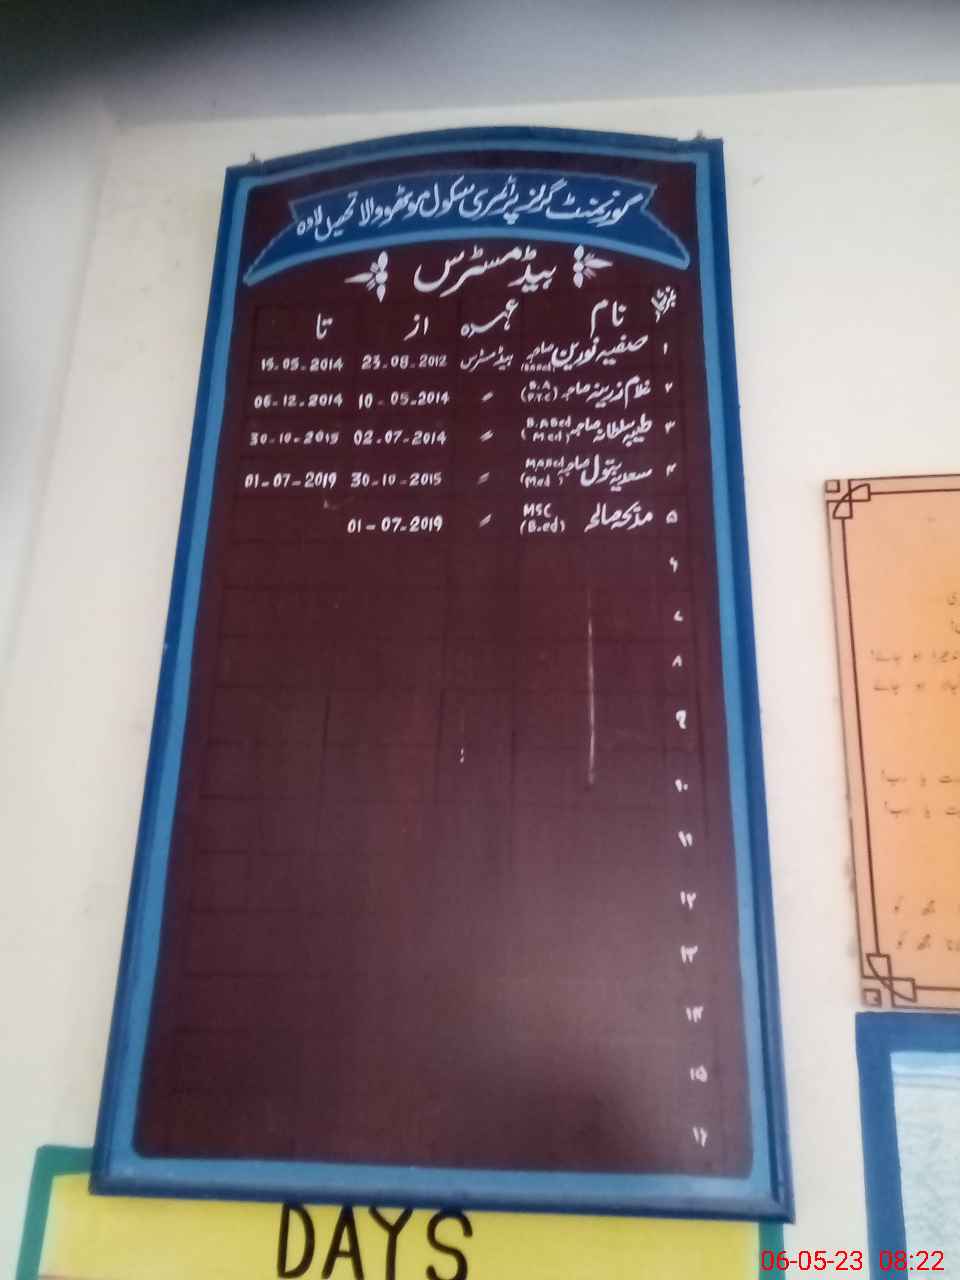 گورنمنٹ گرلز پرائمری سکول ہوٹھووالا تحصیل لاوہ
ہیڈمسٹرس
نمبرشمار نام عہدہ از تا
۱ صفیہ نورین صاحبہ (B.A Bed) ہیڈمسٹرس 23-08-2012 15-05-2014
۲ غلام زرینہ صاحبہ (B.A P.T.C) 〃 10-05-2014 06-12-2014
۳ طیبہ سلطانہ صاحبہ (B.A Bed Med) 〃 02-07-2014 30-10-2015
۴ سعدیہ بتول صاحبہ (M.A Bed Med) 〃 30-10-2015 01-07-2019
۵ مدیحہ صالحہ MSC (B.ed) 〃 01-07-2019
۶
۷
۸
۹
۱۰
۱۱
۱۲
۱۳
۱۴
۱۵
۱۶
DAYS
06-05-23 08:22